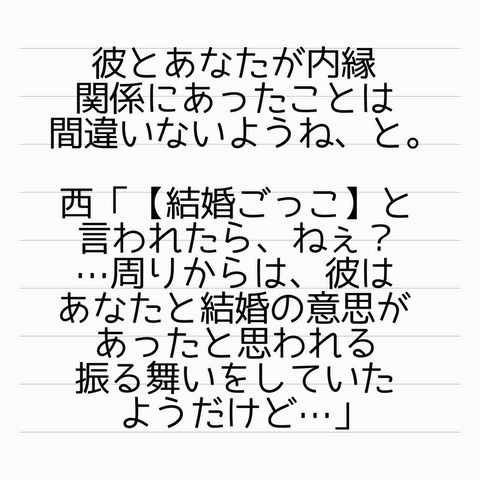 彼とあなたが内縁
関係にあったことは
間違いないようね、と。
西「【結婚ごっこ】と
言われたら、ねぇ？
…周りからは、彼は
あなたと結婚の意思が
あったと思われる
振る舞いをしていた
ようだけど…」